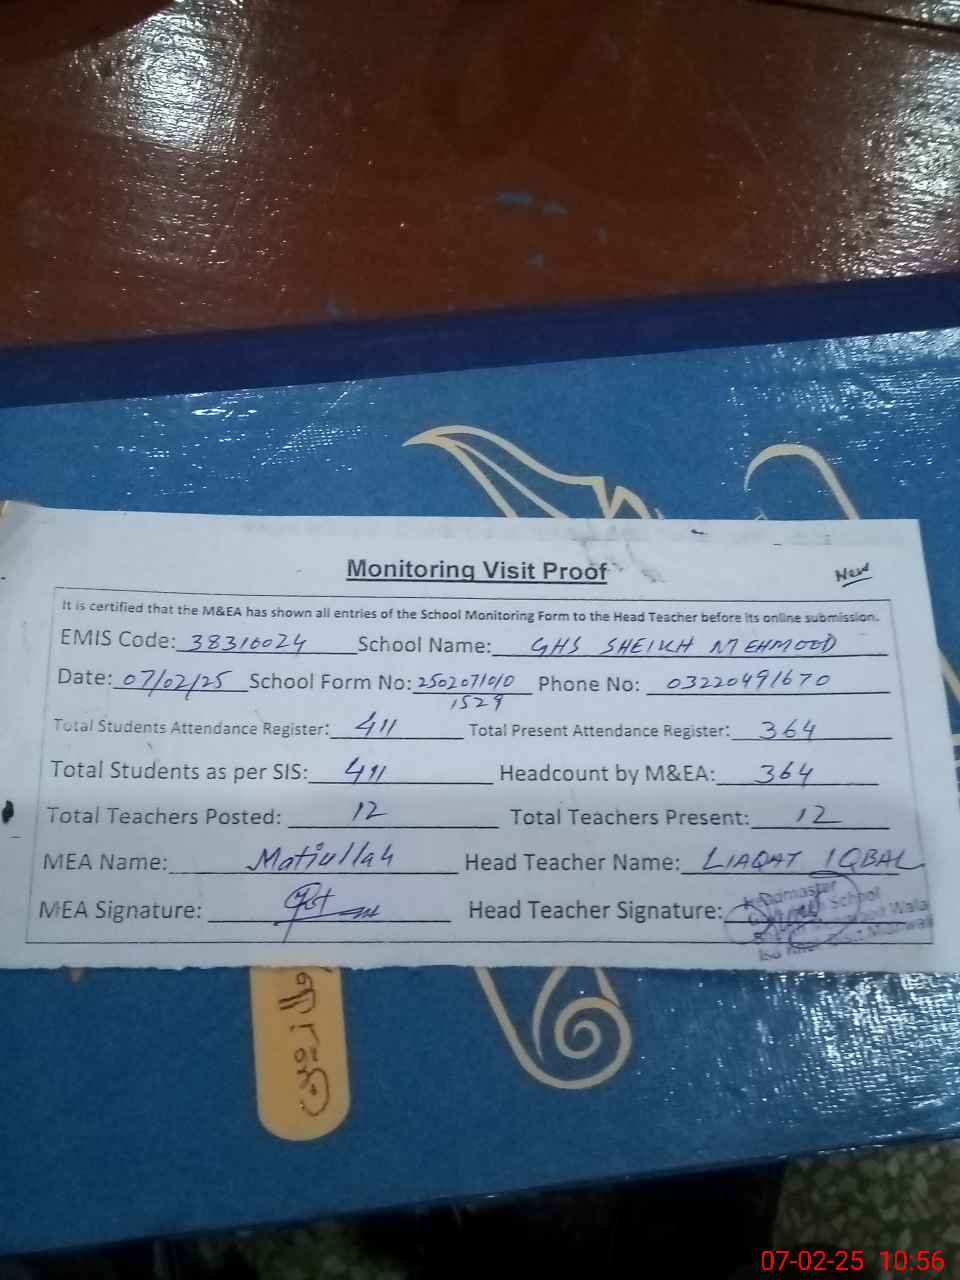 Monitoring Visit Proof
New
It is certified that the M&EA has shown all entries of the School Monitoring Form to the Head Teacher before its online submission.
EMIS Code: 38310024 School Name: GHS SHEIKH MEHMOOD
Date: 07/02/25 School Form No: 2502071010 Phone No: 03220491670
1529
Total Students Attendance Register: 411 Total Present Attendance Register: 364
Total Students as per SIS: 411 Headcount by M&EA: 364
Total Teachers Posted: 12 Total Teachers Present: 12
MEA Name: Matiullah Head Teacher Name: LIAQAT IQBAL
MEA Signature: Head Teacher Signature:
Headmaster
School
Wala
07-02-25 10:56